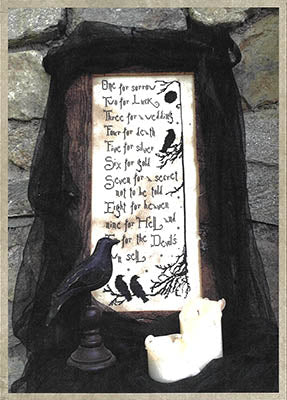 One for sorrow
Two for Luck
Three for a wedding
Four for death
Five for silver
Six for gold
Seven for a secret
not to be told
Eight for heaven
nine for Hell and
for the Devils
sell